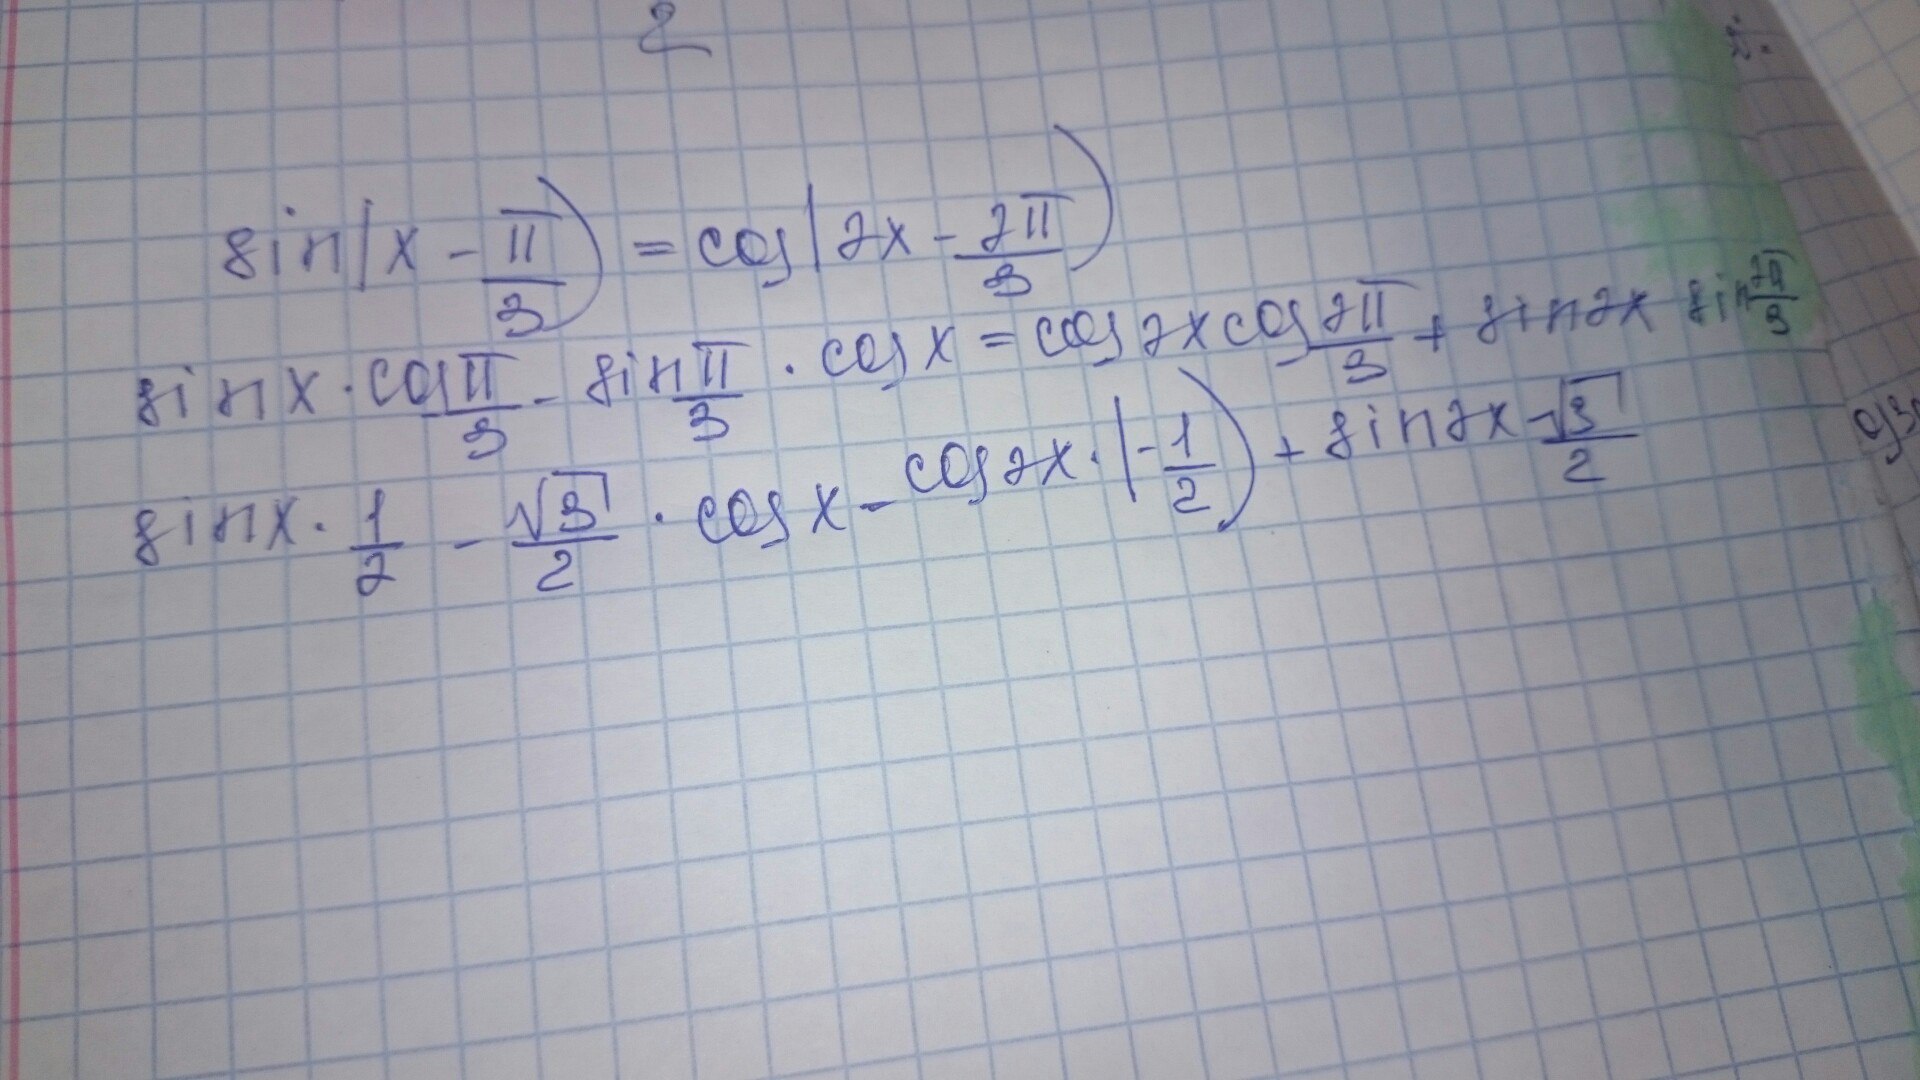 2
sin(x - π/3) = cos(2x - 2π/3)
sin x · cos π/3 - sin π/3 · cos x = cos 2x cos 2π/3 + sin 2x sin 2π/3
sin x · 1/2 - √3/2 · cos x - cos 2x · (-1/2) + sin 2x - √3/2